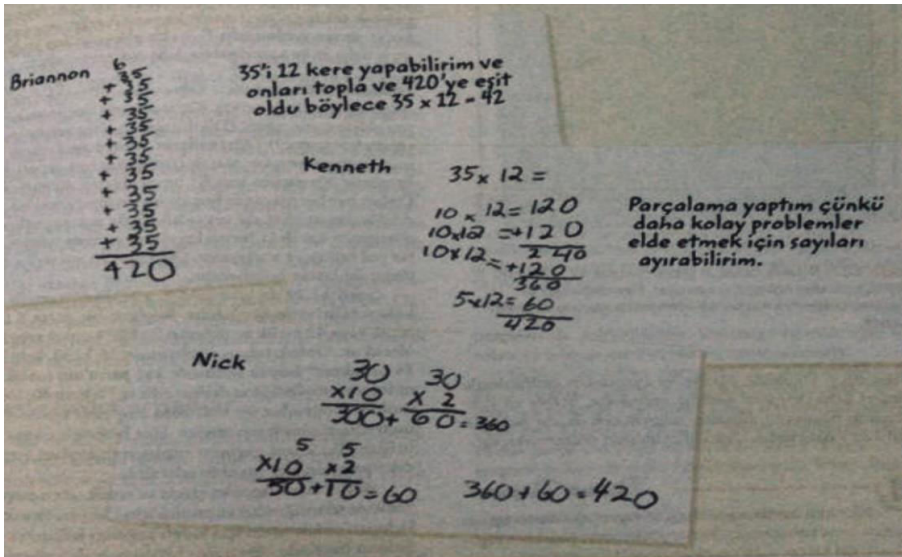 Briannon
6
35
+ 35
+ 35
+ 35
+ 35
+ 35
+ 35
+ 35
+ 35
+ 35
+ 35
+ 35
420
35'i 12 kere yapabilirim ve
onları topla ve 420'ye eşit
oldu böylece 35 x 12 - 42
Kenneth
35 x 12 =
10 x 12 = 120
10x12 = +120
240
10x12 = +120
360
5x12 = 60
420
Parçalama yaptım çünkü
daha kolay problemler
elde etmek için sayıları
ayırabilirim.
Nick
30 30
x10 x 2
300 + 60 = 360
5 5
x10 x2
50 + 10 = 60
360 + 60 = 420